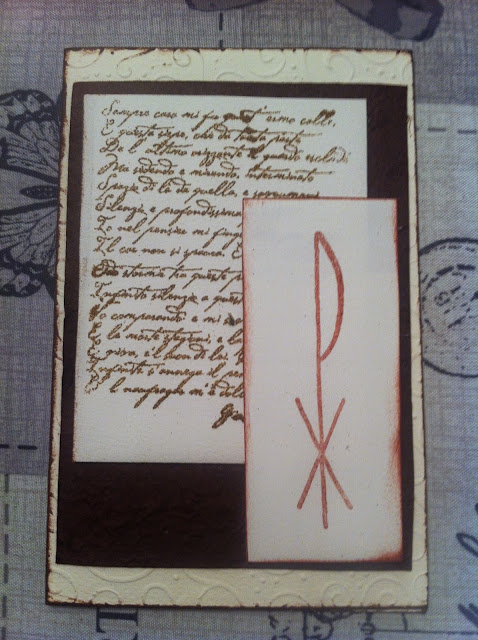 Sempre caro mi fu quest'ermo colle,
E questa siepe, che da tanta parte
De l'ultimo orizzonte il guardo esclude.
Ma sedendo e mirando, interminato
Spazio di là da quella, e sovrumani
Silenzi, e profondissima
Io nel pensier mi fingo
Il cor non si spaura. E
stormir tra queste p
Infinito silenzio a quest
Vo comparando: e mi so
E le morte stagioni, e la
E viva, e il suon di lei.
Infinito s'annega il pe
E 'l naufragar m'è dolc